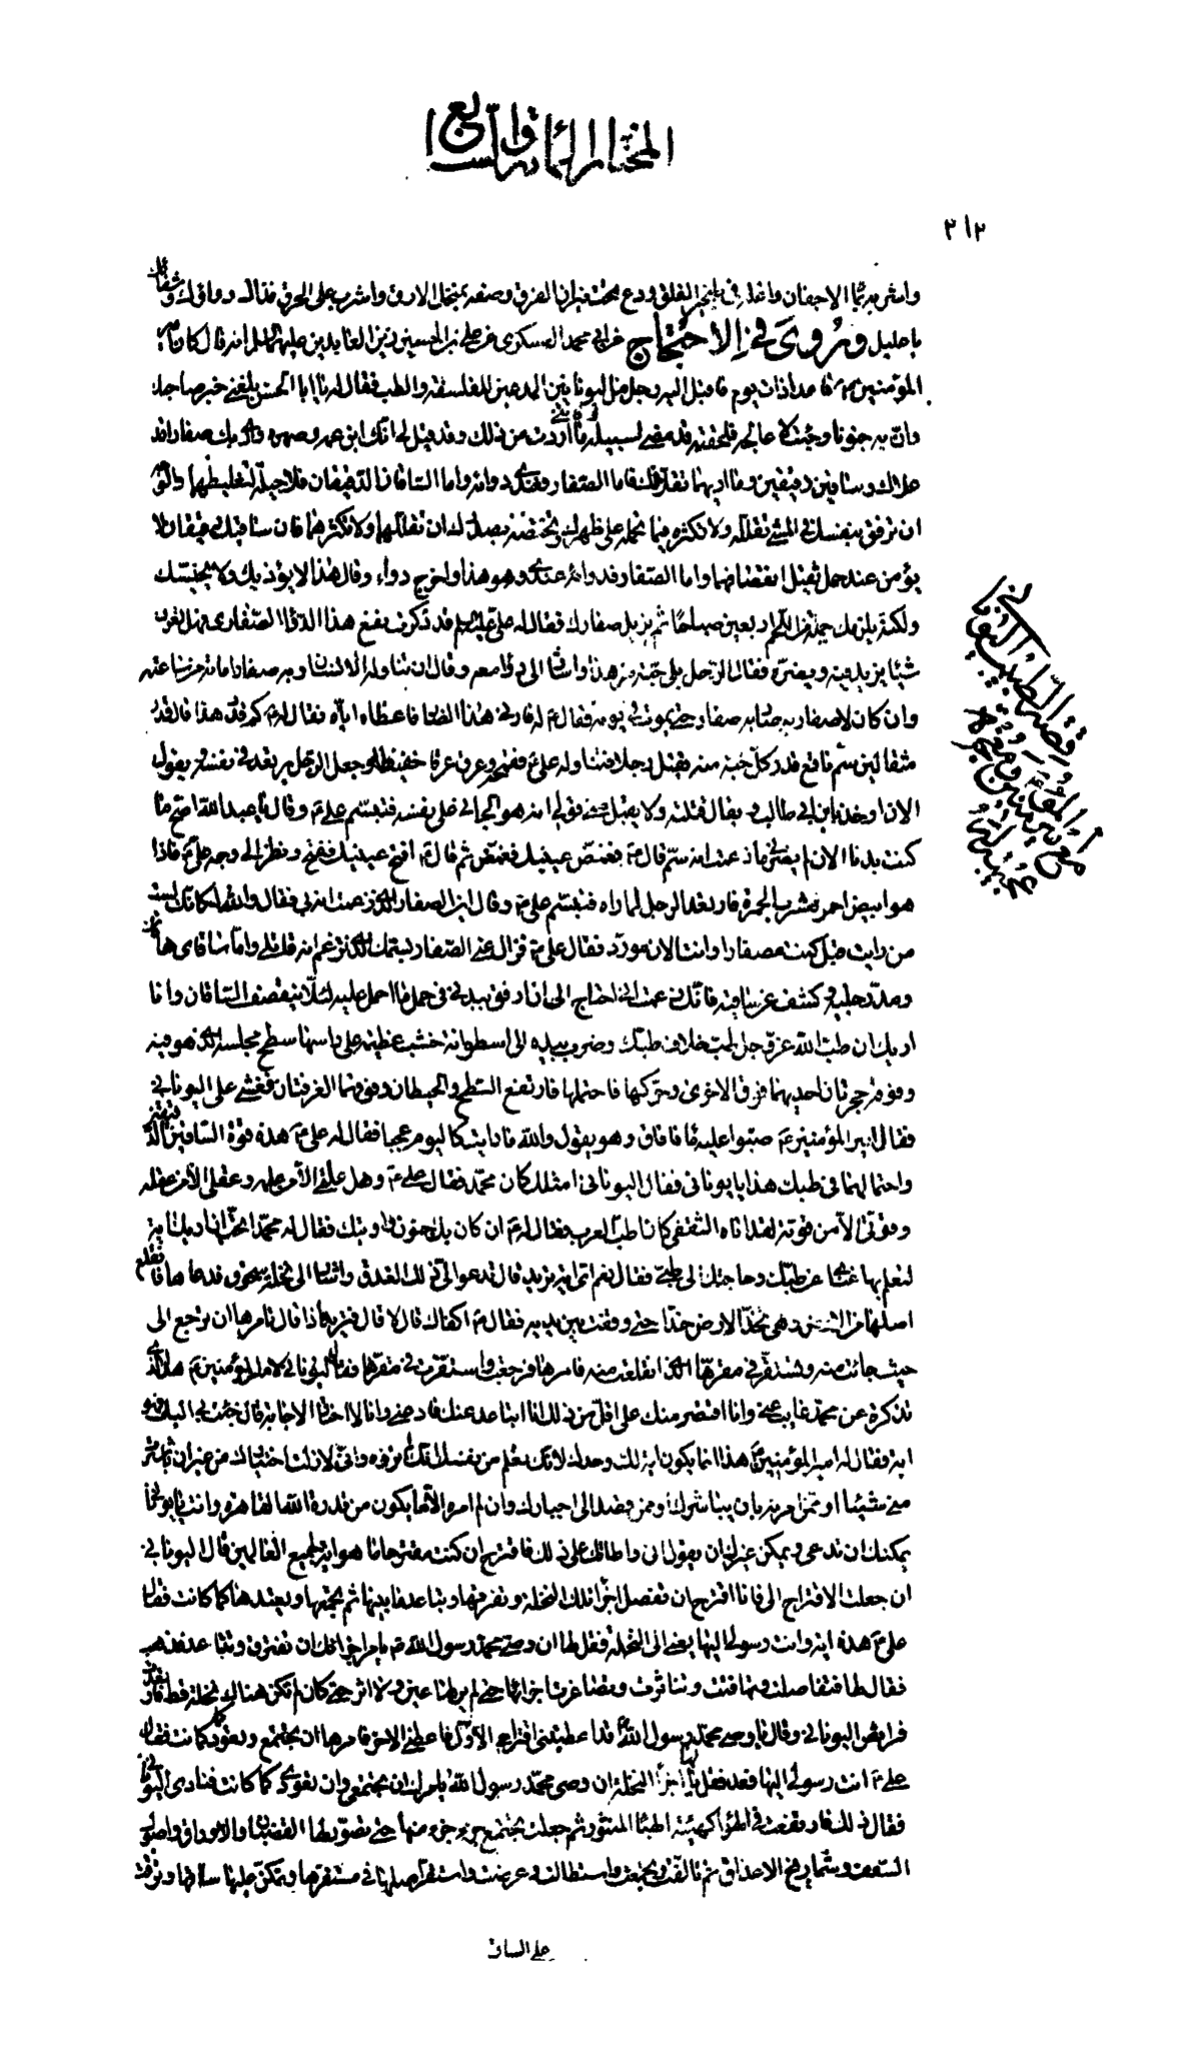 المختار المائة والسابع
٣١٢
يا خليل وروى في الاحتجاج عن ابي محمد العسكري عن علي بن الحسين زين العابدين عليهما السلام انه قال كان امير
المؤمنين ع قاعدا ذات يوم فاقبل اليه رجل من اليونانيين المدعين للفلسفة والطب فقال له يا ابا الحسن بلغني خبر صاحبك
وان به جنونا وجئت لاعالجه فلحقته قد مضى لسبيله وفاتني ما اردت من ذلك وقد قيل لي انك ابن عمه وصهره وارى بك صفارا قد
علاك وساقين دقيقين وما اراهما تقلانك فاما الصفار فعندي دوائه واما الساقان الدقيقان فلا حيلة لتغليظهما والوجه
ان ترفق بنفسك في المشي تقلله ولا تكثره وفيما تحمله على ظهرك وتحتضنه بصدرك ان تقللهما ولا تكثرهما فان ساقيك دقيقان لا
يؤمن عند حمل ثقيل انقصافهما واما الصفار فدوائه عندي وهو هذا واخرج دواء وقال هذا لا يؤذيك ولا يخيسك
ولكنه يلزمك حمية من اللحم اربعين صباحا ثم يزيل صفارك فقال له علي عليه السلم قد ذكرت نفع هذا الدواء لصفاري فهل تعرف
شيئا يزيد فيه ويضره فقال الرجل بلى حبة من هذا واشار الى دواء معه وقال ان تناوله الانسان وبه صفار اماته من ساعته
وان كان لا صفار به صار به صفار حتى يموت في يومه فقال ع له فارني هذا الضار فاعطاه اياه فقال له كم قدر هذا قال قدر
مثقالين سم ناقع قدر كل حبة منه يقتل رجلا فتناوله علي ع فقمحه وعرق عرقا خفيفا وجعل الرجل يرتعد في نفسه ويقول
الان اوخذ بابن ابي طالب ويقال قتلته ولا يقبل مني قولي انه هو الجاني على نفسه فتبسم علي ع وقال يا عبدالله اصح ما
كنت بدنا الان لم يضرني ما زعمت انه سم قال ع فغمض عينيك فغمض ثم قال ع افتح عينيك ففتح ونظر الى وجه علي ع فاذا
هو ابيض احمر مشرب الحمرة فارتعد الرجل لما راه فتبسم علي ع وقال اين الصفار الذي زعمت انه بي فقال والله لكانك لست
من رايت قبل كنت مصفارا وانت الان مورد فقال علي ع فزال عني الصفار بسمك الذي تزعم انه قاتلي واما ساقاي هاتان
ومد رجليه وكشف عن ساقيه فانك زعمت اني احتاج الى ان ارفق ببدني في حمل ما احمل عليه لئلا ينقصف الساقان وانا
اريك ان طب الله عز وجل خلاف طبك وضرب بيده الى اسطوانة خشب عظيمة على راسها سطح مجلسه الذي هو فيه
وفوقه حجرتان احديهما فوق الاخرى وحركها فاحتملها فارتفع السطح والحيطان وفوقهما الغرفتان فغشي على اليوناني
فقال امير المؤمنين ع صبوا عليه ماء فافاق وهو يقول والله ما رايت كاليوم عجبا فقال له علي ع هذه قوة الساقين الدقيقين
واحتمالهما في طبك هذا يا يوناني فقال اليوناني امثلك كان محمد فقال علي ع وهل علمي الا من علمه وعقلي الا من عقله
وقوتي الا من قوته لقد اتاه الثقفي كان اطب العرب فقال له ان كان بك جنون داويتك فقال له محمد اتحب ان اريك اية
تعلم بها غناي عن طبك وحاجتك الى طبي فقال نعم اي اية تريد قال تدعو الي ذلك العذق واشار الى نخلة سحوق فدعاها فانقلع
اصلها من الارض وهي تخد الارض خدا حتى وقفت بين يديه فقال ع اكفاك قال لا قال فتريد ماذا قال تامرها ان ترجع الى
حيث جائت منه وتستقر في مقرها الذي انقلعت منه فامرها فرجعت واستقرت في مقرها فقال اليوناني لامير المؤمنين ع هذا الذي
تذكره عن محمد غايب عني وانا اقتصر منك على اقل من ذلك انا اتباعد عنك فادعني وانا لا اختار الاجابة فان جئت بي اليك فهو
اية فقال له امير المؤمنين ع هذا انما يكون اية لك وحدك لانك تعلم من نفسك انك لم ترده واني ازلت اختيارك من غير ان باشرت
مني شيئا او ممن امرته بان يباشرك او ممن قصد الى اجبارك وان لم امره الا ما يكون من قدرة الله القاهرة وانت يا يوناني
يمكنك ان تدعي ويمكن غيرك ان يقول اني واطاتك على ذلك فاقترح ان كنت مقترحا ما هو اية لجميع العالمين قال اليوناني
ان جعلت الاقتراح الي فانا اقترح ان تفصل اجزاء تلك النخلة وتفرقها وتباعد ما بينها ثم تجمعها وتعيدها كما كانت فقال
علي ع هذه اية وانت رسولي اليها يعني الى النخلة فقل لها ان وصي محمد رسول الله ص يامر اجزائك ان تتفرق وتتباعد فذهب
فقال لها فتفاصلت وتهافتت وتناثرت وتصاغرت اجزائها حتى لم ير لها عين ولا اثر حتى كان لم تكن هناك نخلة قط فارتعدت
فرايص اليوناني وقال يا وصي محمد رسول الله ص قد اعطيتني اقتراحي الاول فاعطني الاخر فامرها ان تجتمع وتعود كما كانت فقال
علي ع انت رسولي اليها فعد فقل لها يا اجزاء النخلة ان وصي محمد رسول الله يامرك ان تجتمعي وان تعودي كما كانت فنادى اليوناني
فقال ذلك فارتفعت في الهواء كهيئة الهباء المنثور ثم جعلت تجتمع جزء جزء منها حتى تصور لها القضبان والاوراق واصول
السعف وشماريخ الاعذاق ثم تالفت وتجمعت واستطالت وعرضت واستقر اصلها في مستقرها وتمكن عليها ساقها وتركب
على الساق
قصة الطبيب اليوناني
مع امير المؤمنين